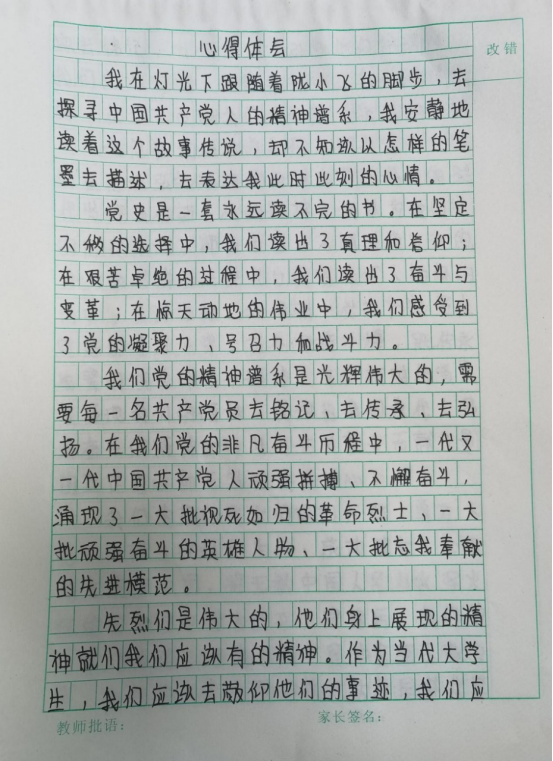 心得体会
改错
我在灯光下跟随着陇小飞的脚步，去
探寻中国共产党人的精神谱系，我安静地
读着这个故事传说，却不知该以怎样的笔
墨去描述，去表达我此时此刻的心情。
党史是一套永远读不完的书。在坚定
不移的选择中，我们读出了真理和信仰；
在艰苦卓绝的过程中，我们读出了奋斗与
变革；在惊天动地的伟业中，我们感受到
了党的凝聚力、号召力和战斗力。
我们党的精神谱系是光辉伟大的，需
要每一名共产党员去铭记、去传承、去弘
扬。在我们党的非凡奋斗历程中，一代又
一代中国共产党人顽强拼搏、不懈奋斗，
涌现了一大批视死如归的革命烈士、一大
批顽强奋斗的英雄人物、一大批忘我奉献
的先进模范。
先烈们是伟大的，他们身上展现的精
神就们我们应该有的精神。作为当代大学
生，我们应该去敬仰他们的事迹，我们应
教师批语：
家长签名：